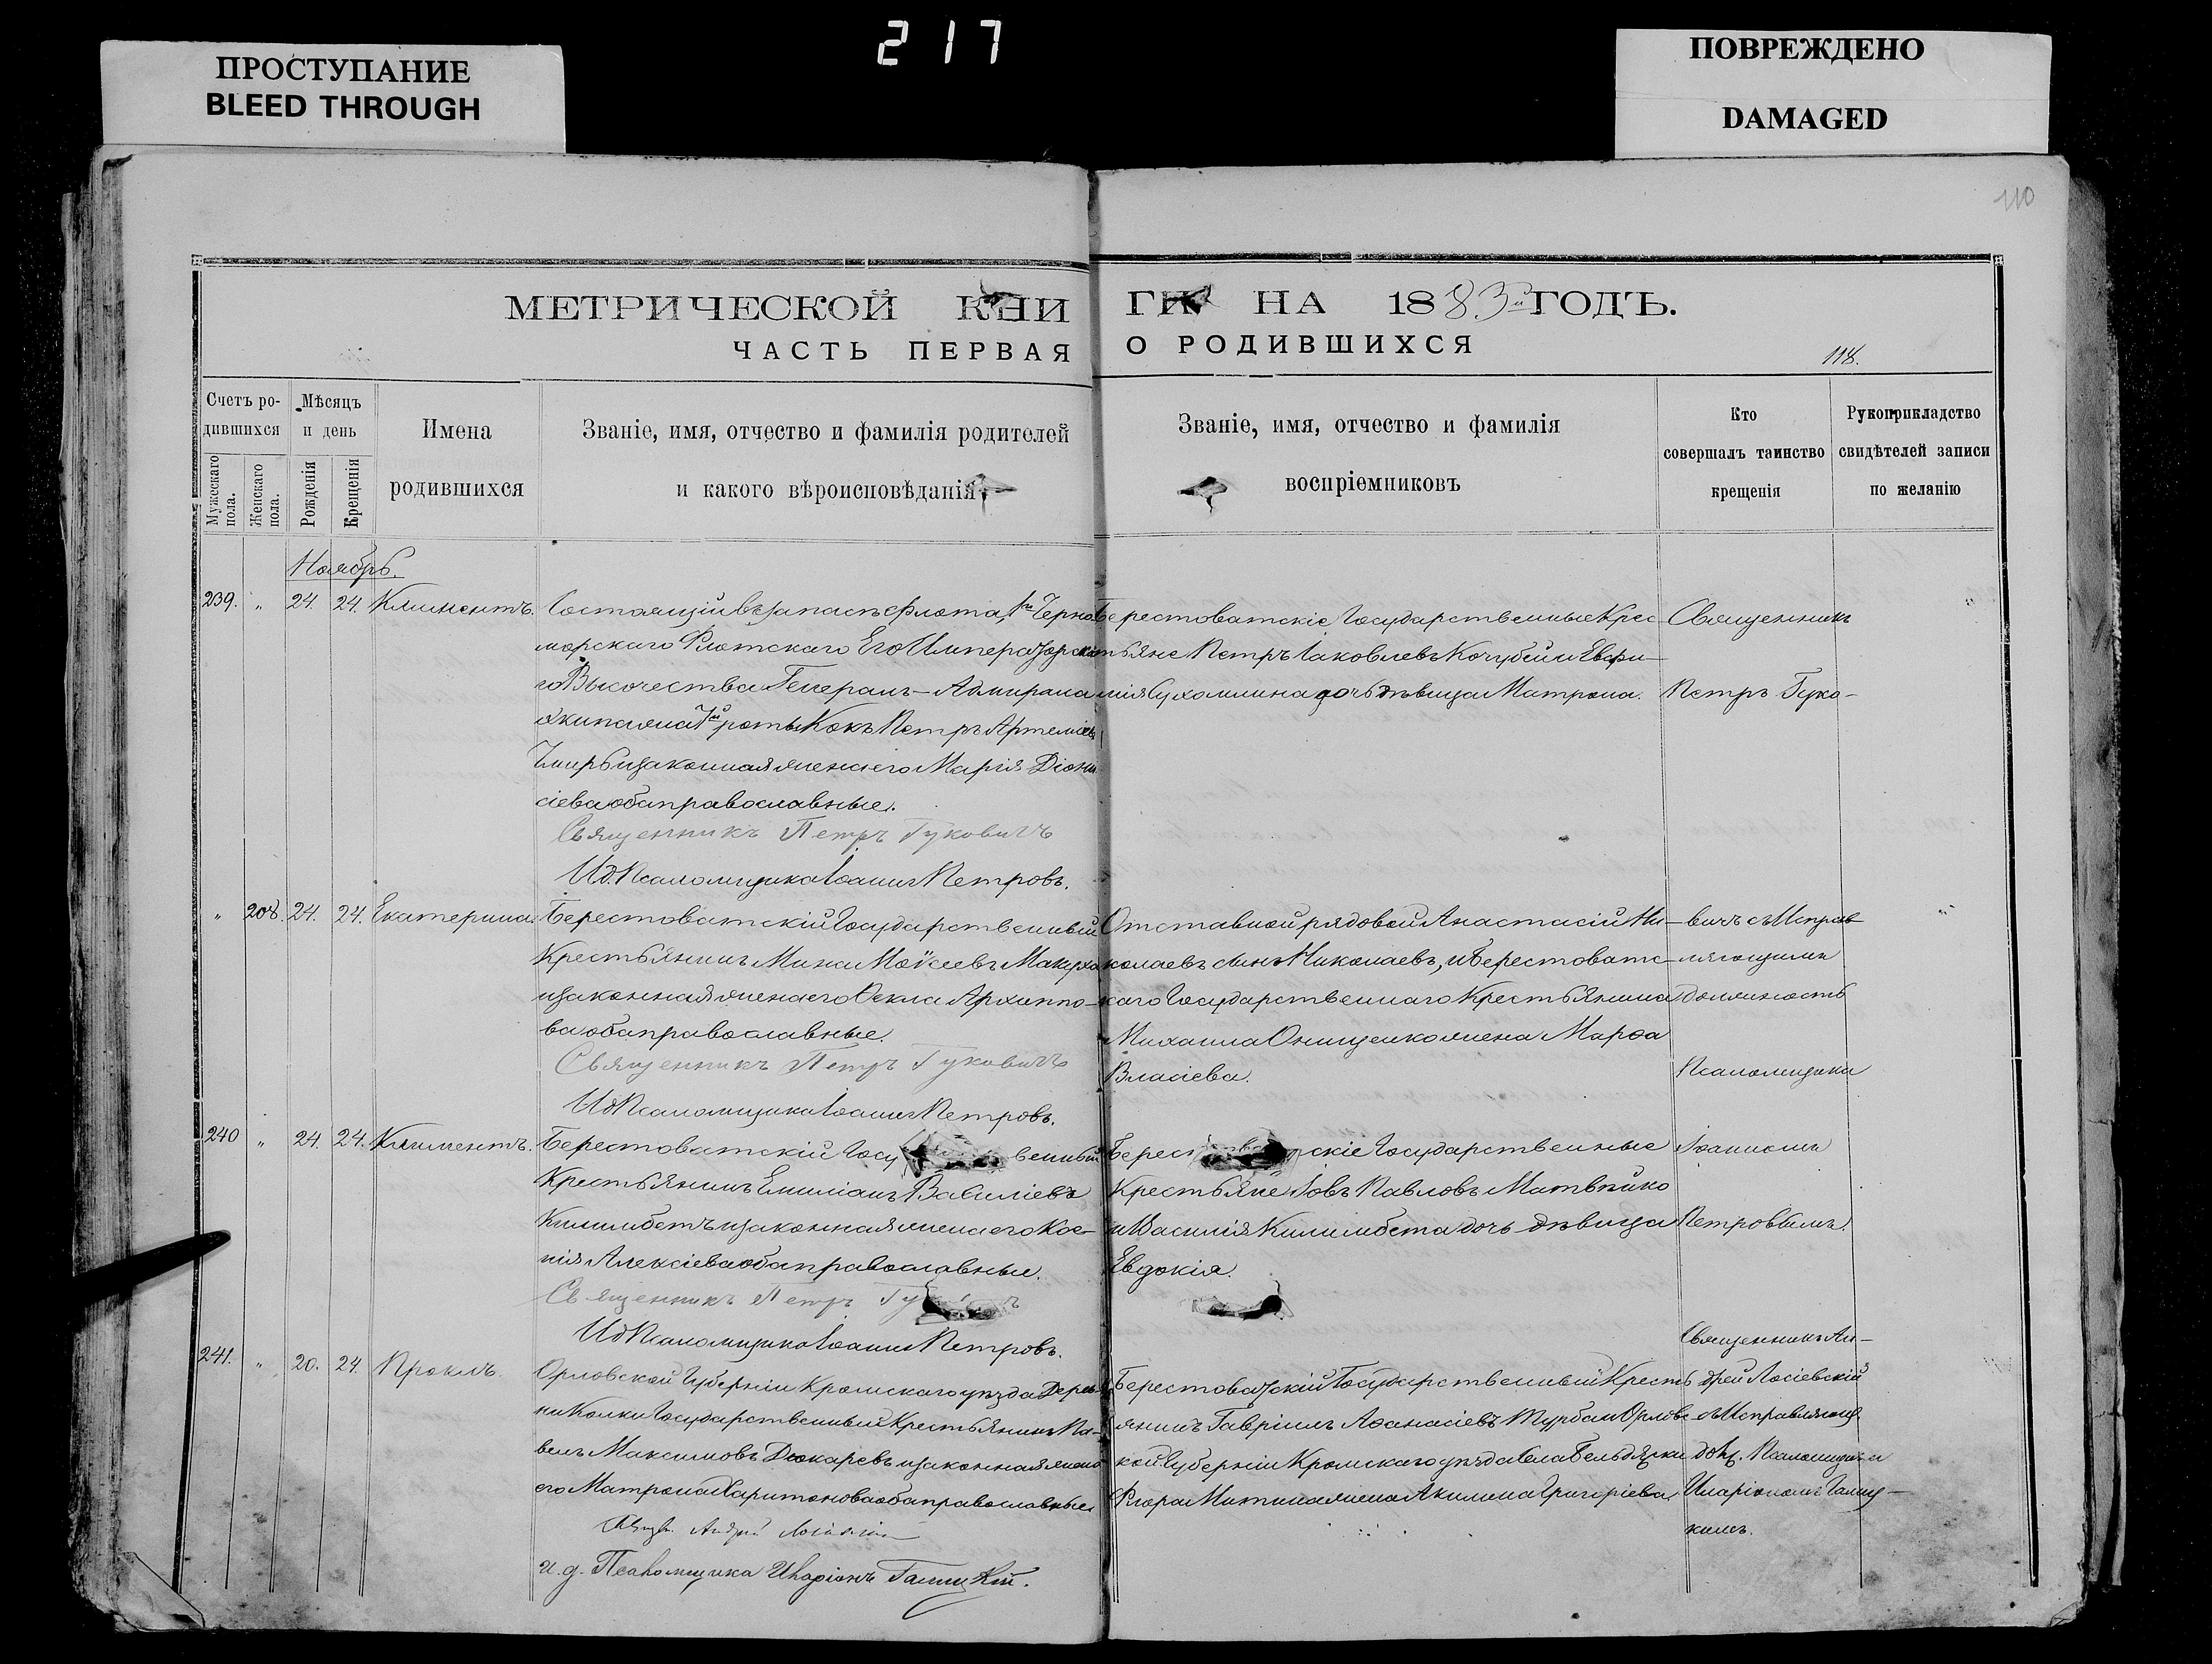 217
ПРОСТУПАНИЕ
BLEED THROUGH
ПОВРЕЖДЕНО
DAMAGED
110
МЕТРИЧЕСКОЙ КНИ
ГИ НА 1883й ГОДЪ.
ЧАСТЬ ПЕРВАЯ
О РОДИВШИХСЯ
118.
Счетъ ро-
дившихся
Мужескаго пола.
Женскаго пола.
Мѣсяцъ
и день
Рожденія
Крещенія
Имена
родившихся
Званіе, имя, отчество и фамилія родителей
и какого вѣроисповѣданія
Званіе, имя, отчество и фамилія
воспріемниковъ
Кто
совершалъ таинство
крещенія
Рукоприкладство
свидѣтелей записи
по желанію
Ноябрь.
239. " 24. 24. Климентъ.
Состоящій въ запасѣ флота, 1го Черно
морскаго Флотскаго Его Императорска
го Высочества Генералъ-Адмирала
экипажа 7й роты Кокъ Петръ Артеміевъ
Чмирь и законная жена его Марія Діони
сіева оба православные.
Священникъ Петръ Гуковичъ
И.д. Псаломщика Іоаннъ Петровъ.
Берестоватскіе Государственные Крес
тьяне Петръ Іаковлевъ Кочубей и Евфи-
мія Сухомлина дочь дѣвица Матрона.
Священникъ
Петръ Гуко-
" 208. 24. 24. Екатерина.
Берестоватскій Государственный
Крестьянинъ Мина Моѵсеевъ Макуха
и законная жена его Ѳекла Архиппо-
ва оба православные.
Священникъ Петръ Гуковичъ
И.д. Псаломщика Іоаннъ Петровъ.
Отставной рядовой Анастасій Ни-
колаевъ сынъ Николаевъ, и Берестоватс-
каго Государственнаго Крестьянина
Михаила Онищенко жена Марѳа
Власіева.
вичъ съ Исправ
ляющимъ
должность
Псаломщика
240 " 24. 24. Климентъ.
Берестоватскій Госу венный
Крестьянинъ Емиліанъ Василіевъ
Килимбетъ и законная жена его Ксе-
нія Алексіева оба православные.
Священникъ Петръ
И.д. Псаломщика Іоаннъ Петровъ.
Берес скіе Государственные
Крестьяне Іовъ Павловъ Матвѣйко
и Василія Килимбета дочь дѣвица
Евдокія.
Іоанномъ
Петровымъ.
241. " 20. 24. Проклъ
Орловской Губерніи Кромскаго уѣзда Дерев
ни Колки Государственный Крестьянинъ Па-
велъ Максимовъ Дюкаревъ и законная жена
его Матрона Харитонова оба православные
Андрей Лосіевскій
и. д. Псаломщика Иларіонъ Галицкій.
Берестоватскій Государственный Кресть
янинъ Гавріилъ Аѳанасіевъ Турбай и Орловс
кой Губерніи Кромскаго уѣзда Села Бельдяжки
Флора Митина жена Акилина Григоріева.
Священникъ Ан-
дрей Лосіевскій
съ Исправляющ.
долж. Псаломщика
Иларіономъ Галиц-
кимъ.